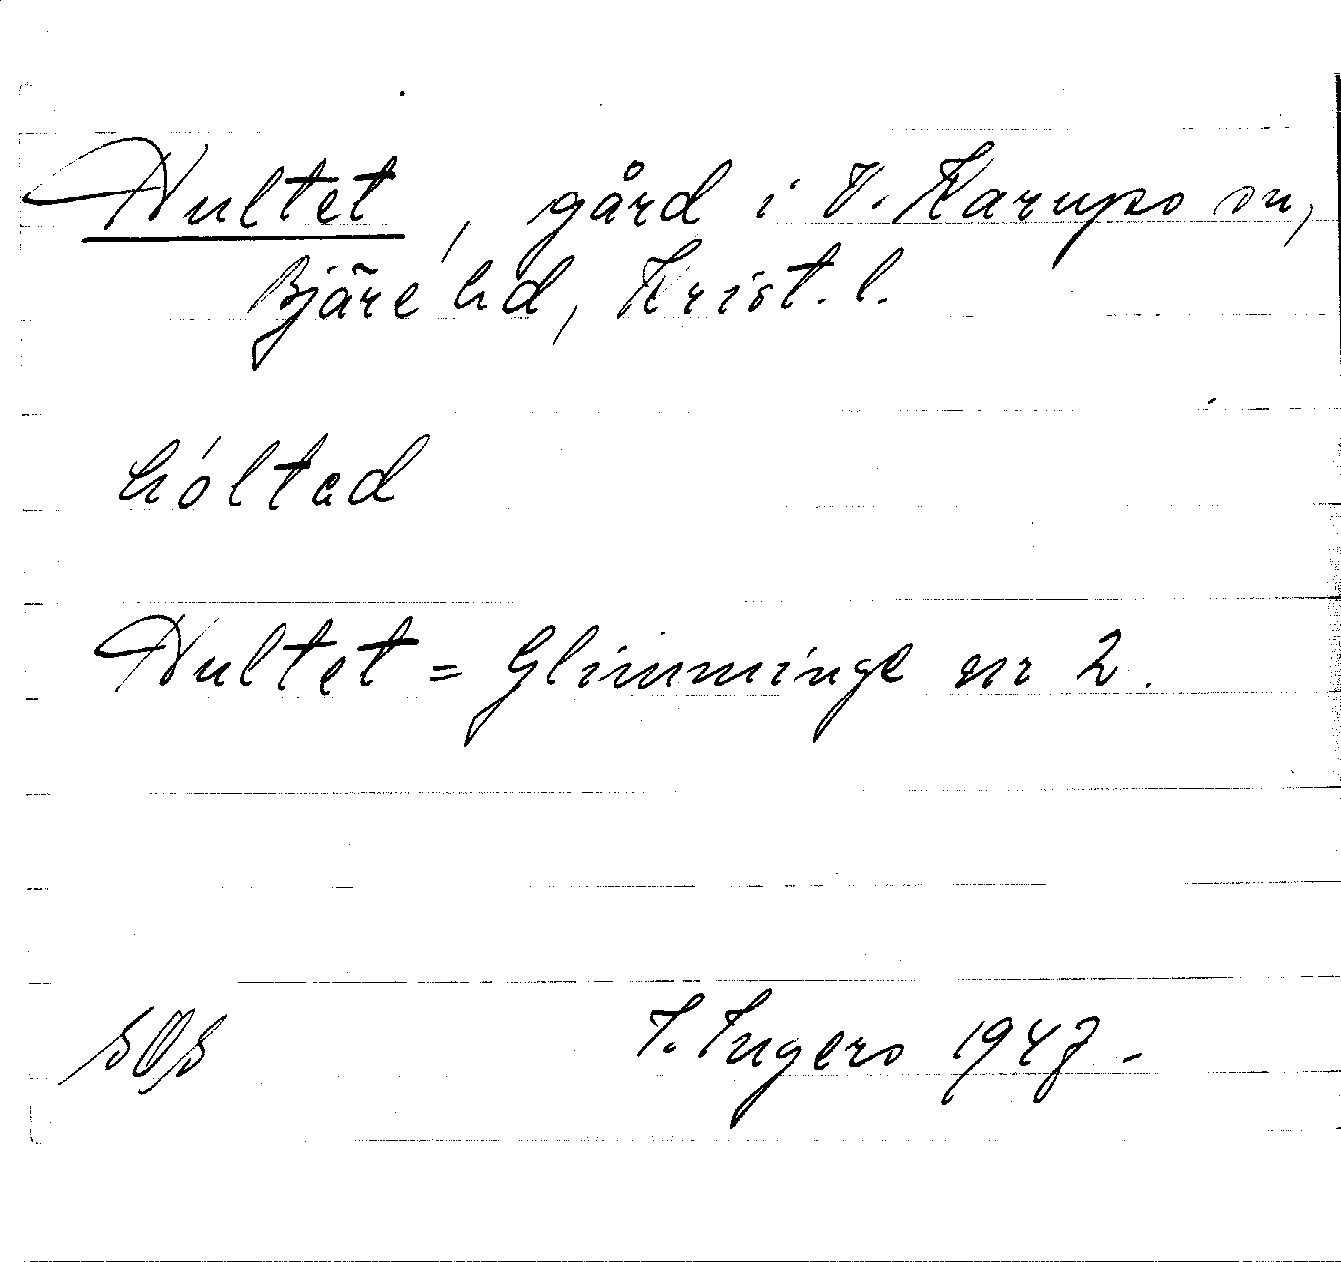 Hultet, gård i V. Karups sn,
Bjäre hd, Krist. l.
hóltad
Hultet = Glimminge nr 2.
I. Ingers 1947.